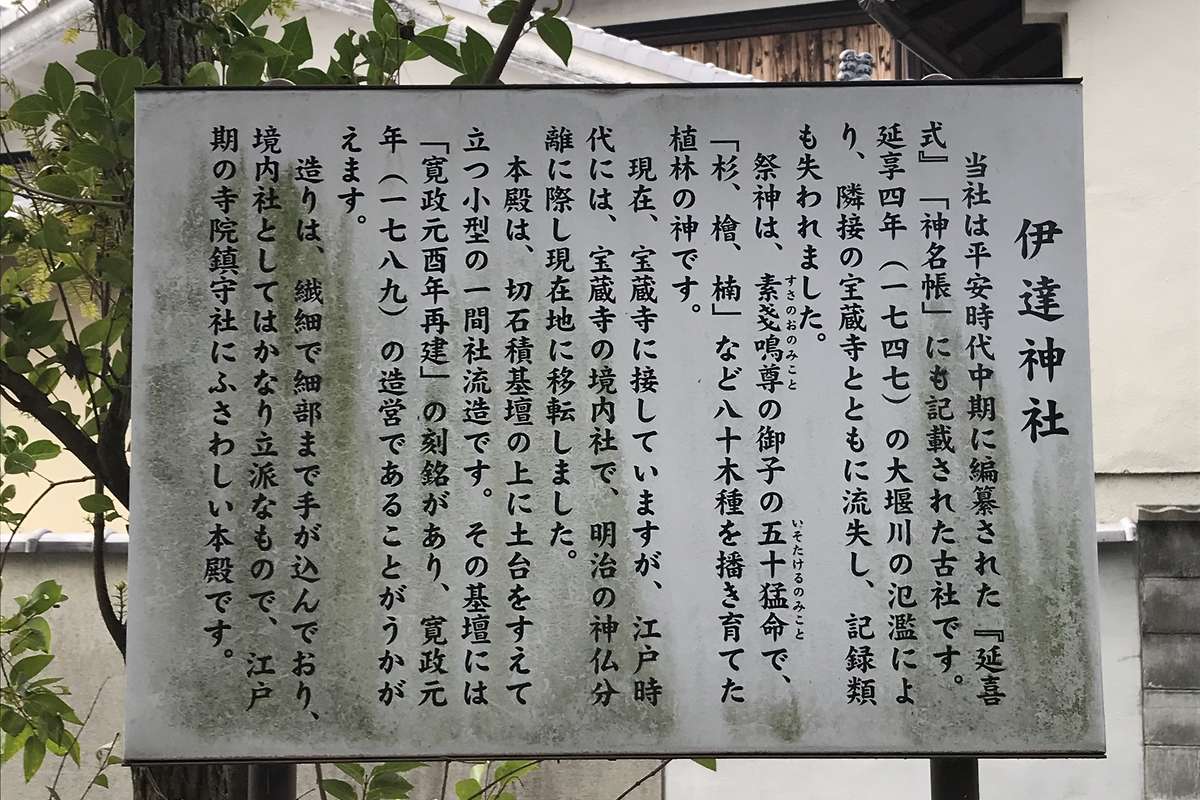 伊達神社
当社は平安時代中期に編纂された『延喜
式』「神名帳」にも記載された古社です。
延享四年（一七四七）の大堰川の氾濫によ
り、隣接の宝蔵寺とともに流失し、記録類
も失われました。
祭神は、素戔嗚尊の御子の五十猛命で、
すさのおのみこと
いそたけるのみこと
「杉、檜、楠」など八十木種を播き育てた
植林の神です。
現在、宝蔵寺に接していますが、江戸時
代には、宝蔵寺の境内社で、明治の神仏分
離に際し現在地に移転しました。
本殿は、切石積基壇の上に土台をすえて
立つ小型の一間社流造です。その基壇には
「寛政元酉年再建」の刻銘があり、寛政元
年（一七八九）の造営であることがうかが
えます。
造りは、繊細で細部まで手が込んでおり、
境内社としてはかなり立派なもので、江戸
期の寺院鎮守社にふさわしい本殿です。